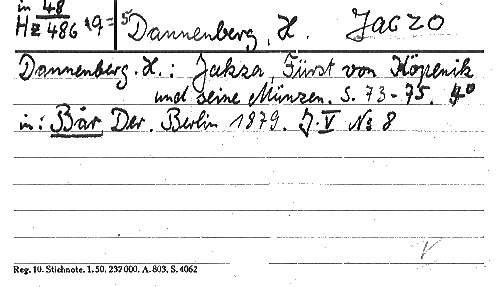 in 48
Hz 486,9=5 Dannenberg, H. Jaczo
Dannenberg. H.: Jakza, Fürst von Köpenik
und seine Münzen. S. 73-75. 4°
in: Bär, Der. Berlin 1879. J. V No 8
V
Reg. 10. Stichnote. 1. 50. 237000. A. 803. S. 4062